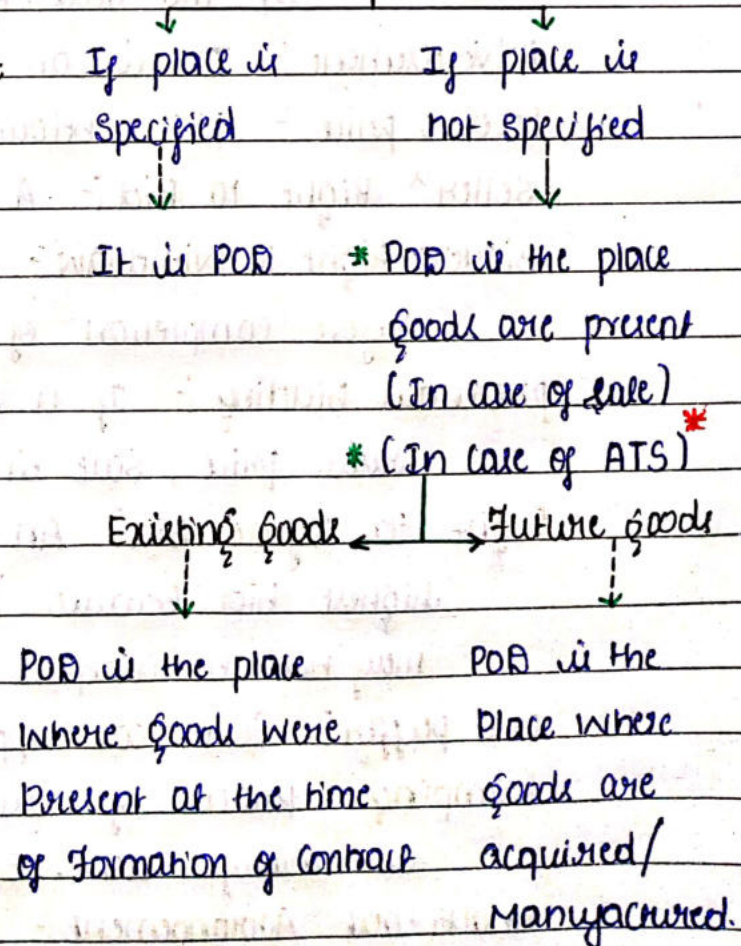 If place is
Specified
If place is
not specified
It is POD
* POD is the place
goods are present
(In case of sale)
* (In case of ATS) *
Existing goods
Future goods
POD is the place
where goods were
Present at the time
of Formation of Contract
POD is the
Place where
goods are
acquired/
Manufactured.